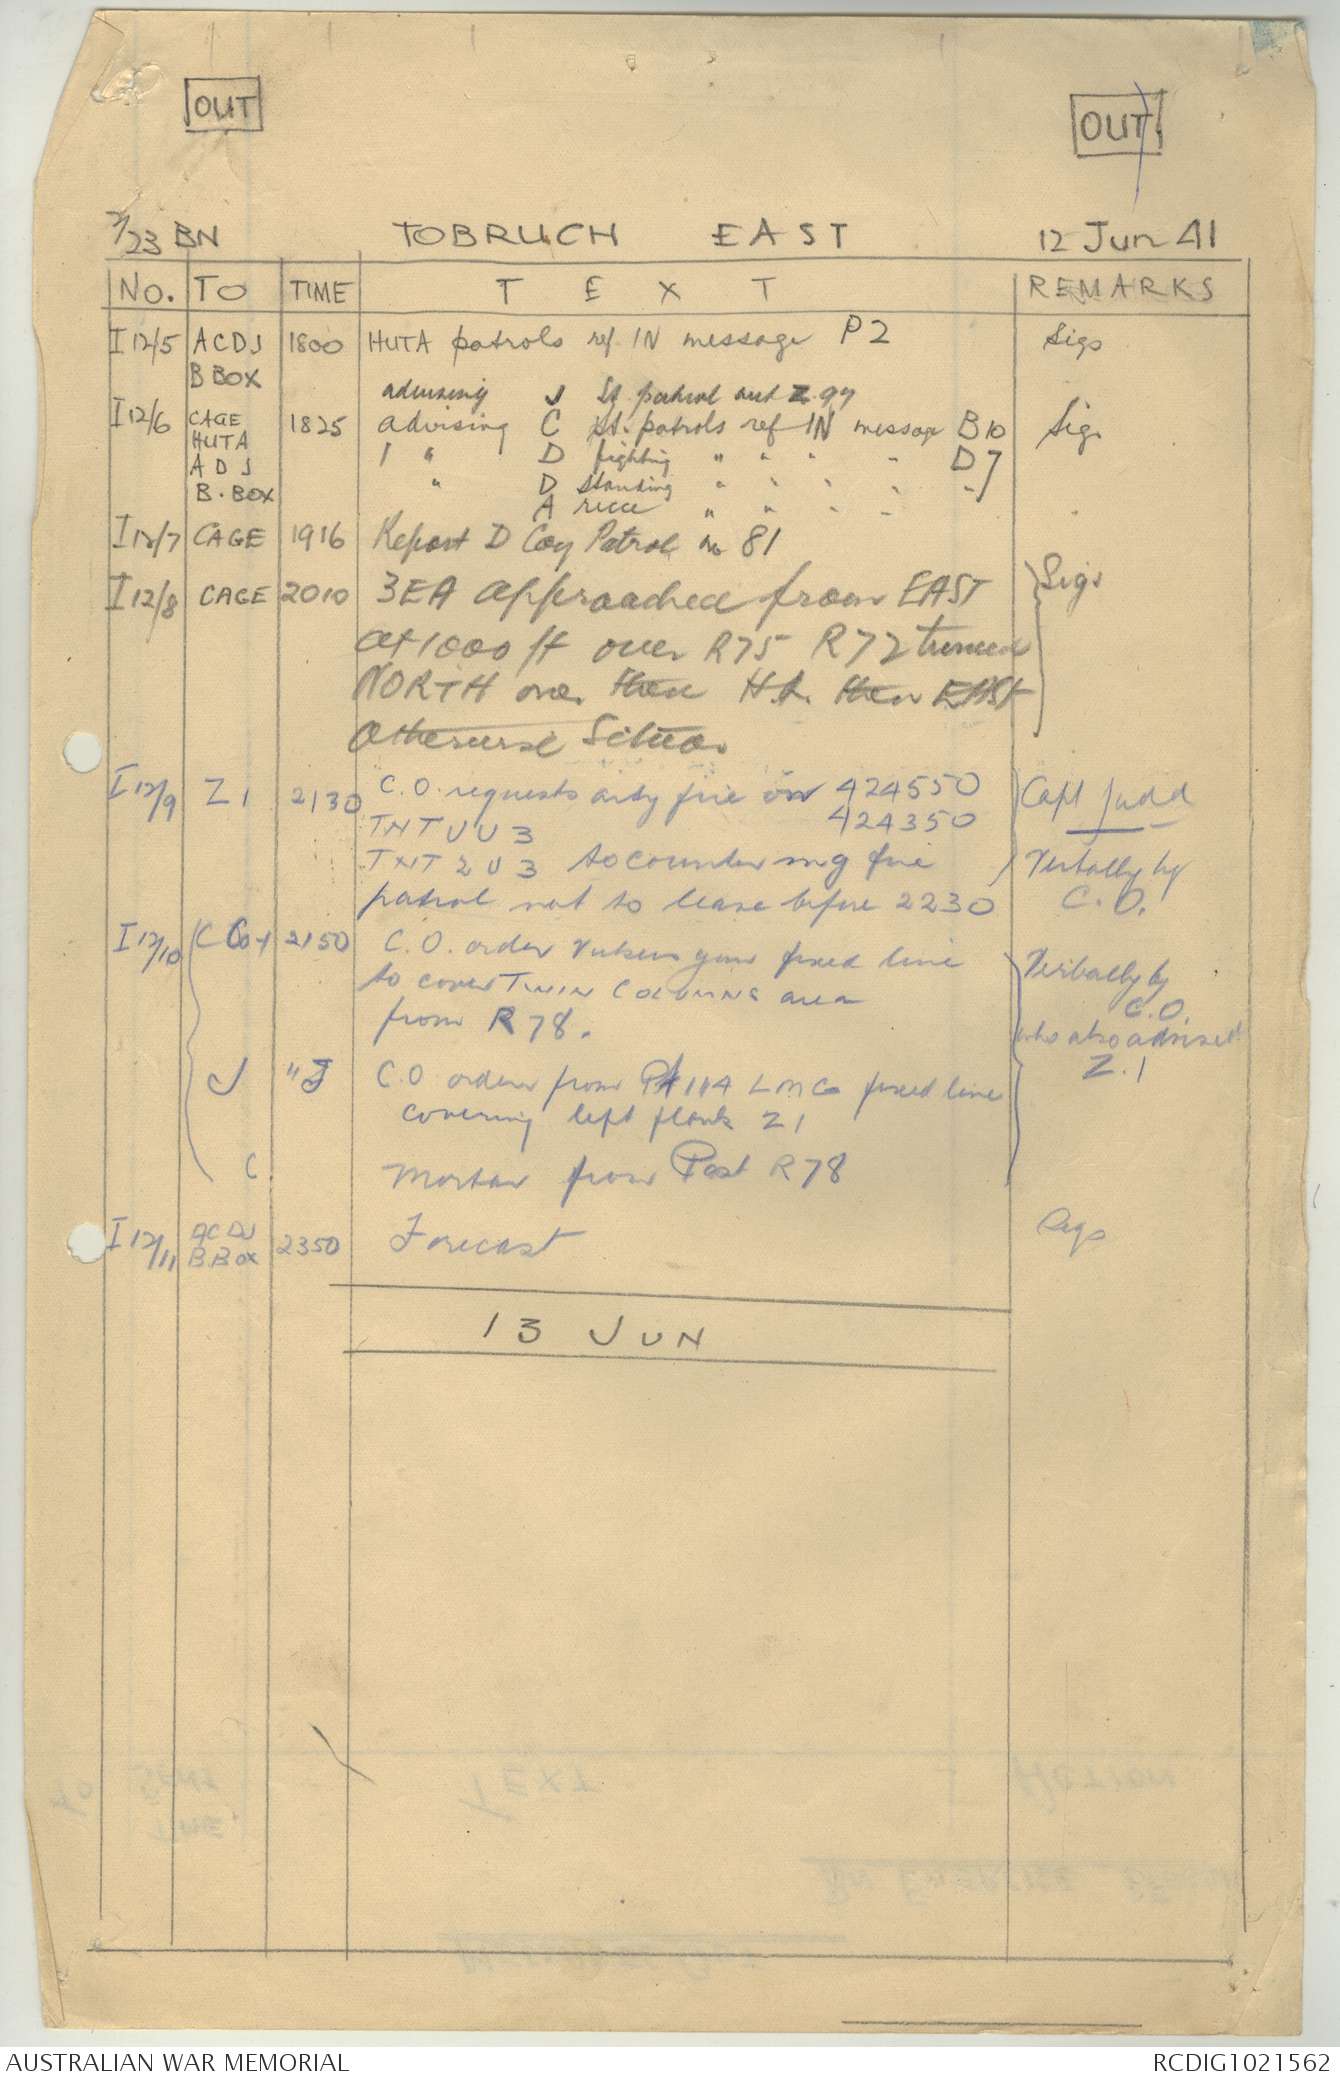 OUT
OUT
2/23 BN TOBRUCH EAST 12 Jun 41
No. TO TIME TEXT REMARKS
I 12/5 ACDJ 1800 HUTA patrols ref IN message P2 Sigs
B BOX
advising J St. patrol
I 12/6 CAGE 1825 advising C St. patrols ref IN message B10 Sigs
HUTA
ADJ " D fighting " " " " D7
B.BOX " D standing " " " " "
A recce " " " "
I 12/7 CAGE 1916 Report D Coy Patrol no 81
I 12/8 CAGE 2010 3EA approached from EAST Sigs
at 1000 ft over R75 R72 turned
NORTH over then H.A. then EAST
Otherwise
I 12/9 Z1 2130 C.O. requests arty fire on 424550 Capt Judd
TNT U U 3 424350
TNT 2 U 3 to counter mg fire Verbally by
patrol not to leave before 2230 C.O.
I 12/10 C Coy 2150 C.O. order Vickers gun fixed line Verbally by
to cover TWIN COLUMNS area C.O.
from R78. who also advised
J " C.O orders from 114 LMG fixed line Z.1
covering left flank Z1
C. Mortar from Post R78
I 12/11 ACDJ 2350 Forecast Sigs
B.Box
13 JUN
TEXT
ACTION
AUSTRALIAN WAR MEMORIAL RCDIG1021562